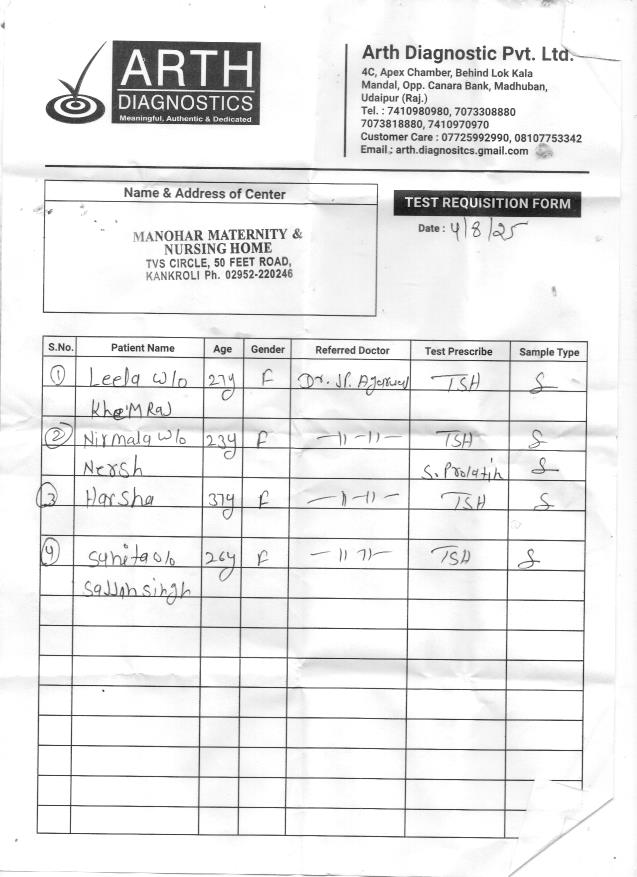 ARTH
DIAGNOSTICS
Meaningful, Authentic & Dedicated
Arth Diagnostic Pvt. Ltd.
4C, Apex Chamber, Behind Lok Kala
Mandal, Opp. Canara Bank, Madhuban,
Udaipur (Raj.)
Tel. : 7410980980, 7073308880
7073818880, 7410970970
Customer Care : 07725992990, 08107753342
Email : arth.diagnositcs.gmail.com
Name & Address of Center
MANOHAR MATERNITY &
NURSING HOME
TVS CIRCLE, 50 FEET ROAD,
KANKROLI Ph. 02952-220246
TEST REQUISITION FORM
Date : 4/8/25
S.No. Patient Name Age Gender Referred Doctor Test Prescribe Sample Type
1 Leela w/o 27y F Dr. J.P. Agarwal TSH S
KheMRaj
2 Nirmala w/o 23y F -11-11- TSH S
Nersh S. Prolatin S
3 Harsha 37y F -11-11- TSH S
4 Sunita w/o 26y F -11 11- TSH S
Sajjan singh